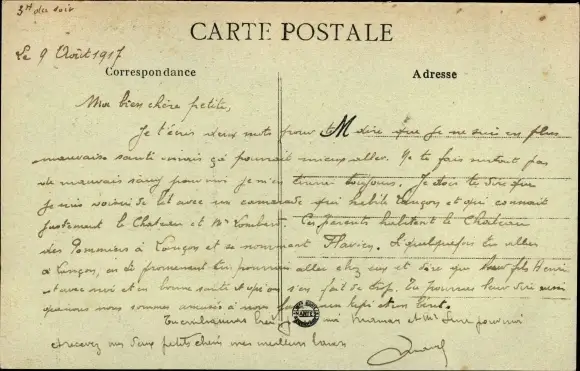 3h du soir
CARTE POSTALE
Le 9 Août 1917
Correspondance
Adresse
Ma bien chère petite,
Je t'écris deux mots pour te dire que je ne suis en plus
mauvaise santé mais ça pourrait mieux aller. Ne te fais surtout pas
de mauvais sang pour moi je m'en tirerai toujours. Je dois te dire que
je suis voisin de lit avec un camarade qui habite Langon et qui connait
justement le Chateau et Mr Lombert. Ces parents habitent le Chateau
des Pommiers à Langon et se nomment Flavien. Si quelquefois tu allais
à Langon, en te promenant tu pourrais aller chez eux et dire que leur fils Henri
est avec moi et en bonne santé et qu'on s'en fait de trop. Tu pourras leur dire aussi
que nous nous sommes
Tu embrasseras bien pour moi
et recevez mes deux petits chéris mes meilleurs baisers